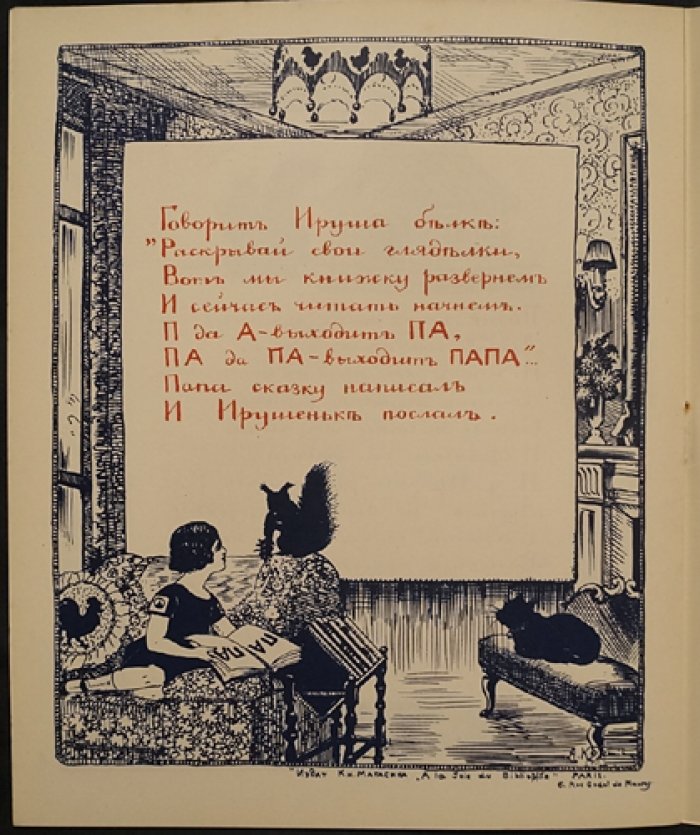 Говоритъ Ируша бѣлкѣ:
"Раскрывай свои глядѣлки,
Вотъ мы книжку развернемъ
И сейчасъ читать начнемъ.
П да А-выходитъ ПА,
ПА да ПА-выходитъ ПАПА"...
Папа сказку написалъ
И Ирушенькѣ послалъ.
ПА ПА
"Издат Кн. Магасина "A la Joie du Bibliophile" PARIS.
6. Rue